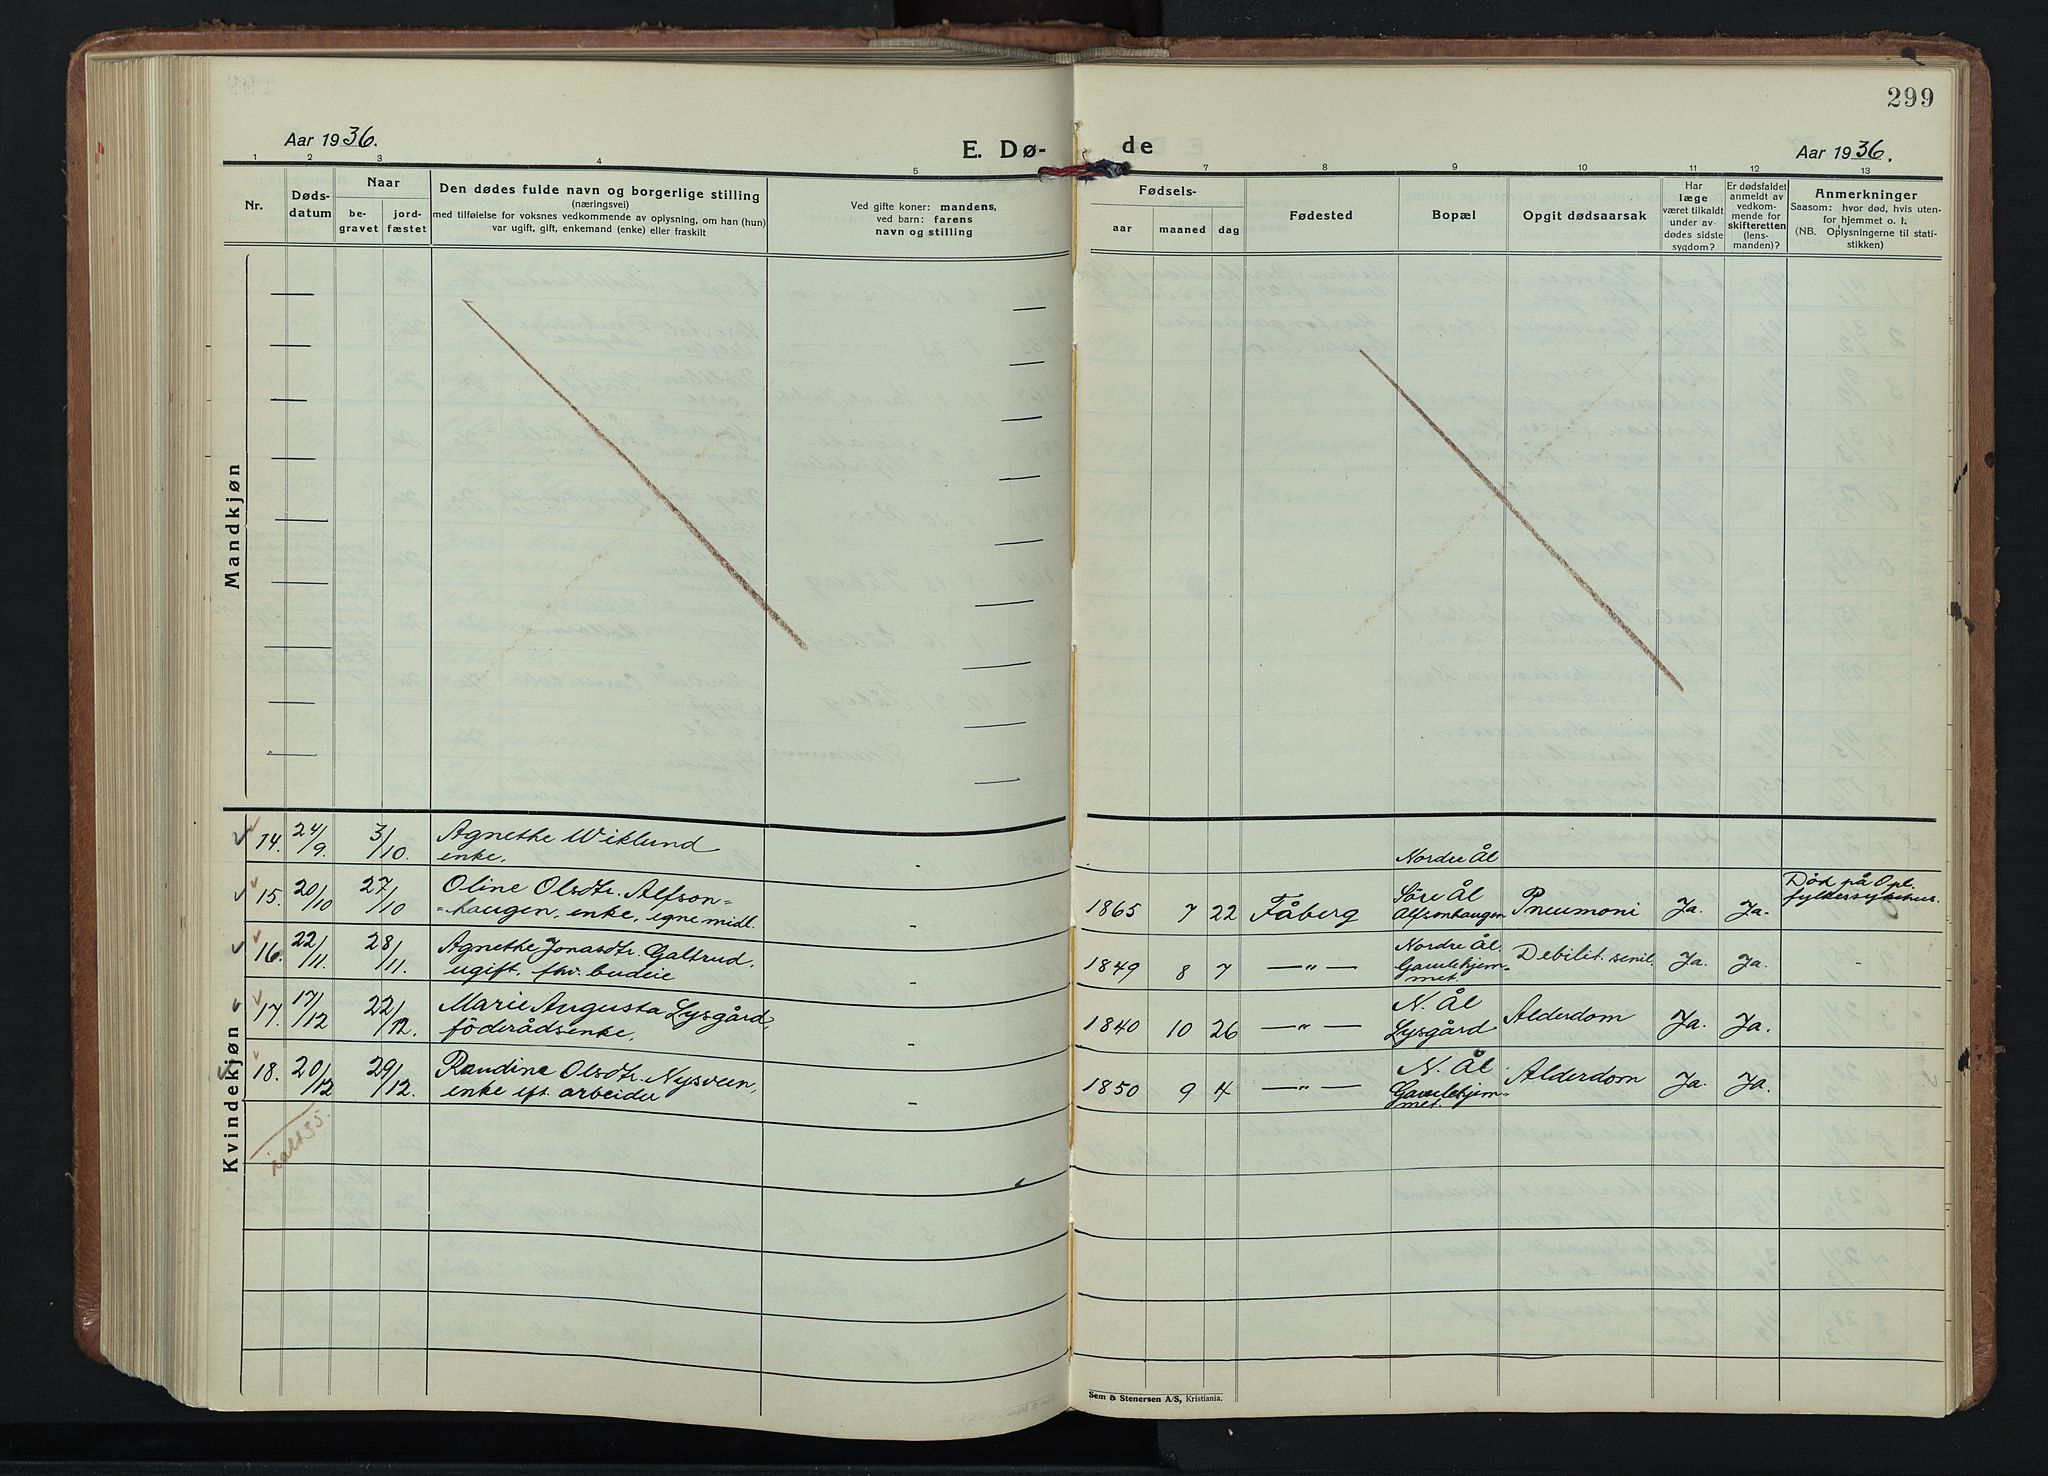 299
Aar 1936.
E. Dø-
de
Aar 1936.
1 2 3 4 5 7 8 9 10 11 12 13
Nr.
Døds-
datum
Naar
be-
gravet
jord-
fæstet
Den dødes fulde navn og borgerlige stilling
(næringsvei)
med tilføielse for voksnes vedkommende av oplysning, om han (hun)
var ugift, gift, enkemand (enke) eller fraskilt
Ved gifte koner: mandens,
ved barn: farens
navn og stilling
Fødsels-
aar
maaned
dag
Fødested
Bopæl
Opgit dødsaarsak
Har
læge
været tilkaldt
under av-
dødes sidste
sygdom?
Er dødsfaldet
anmeldt av
vedkom-
mende for
skifteretten
(lens-
manden)?
Anmerkninger
Saasom: hvor død, hvis uten-
for hjemmet o. l.
(NB. Oplysningerne til stati-
stikken)
Mandkjøn
Kvindekjøn
14. 24/9. 3/10. Agnethe Wiklund
enke. - Nordre Ål
15. 20/10 27/10 Oline Olsdtr. Alfson=
=haugen, enke, egne midl. - 1865 7 22 Fåberg Söre Ål
Alfsonhaugen Pneumoni Ja. Ja. Död på Opl.
fylkessykehus.
16. 22/11. 28/11. Agnethe Jonasdtr. Galtrud,
ugift, fhv. budeie - 1849 8 7 —"— Nordre Ål.
Gamlehjem=
met. Debilit. senil. Ja. Ja. -
17. 17/12 22/12. Marie Augusta Lysgård,
föderådsenke. - 1840 10 26 —"— N. Ål
Lysgård Alderdom Ja. Ja.
18. 20/12 29/12. Randine Olsdtr. Nysveen,
enke eft. arbeider - 1850 9 4 —"— N. Ål
Gamlehjem=
met. Alderdom Ja. Ja.
ialt 35.
Sem & Stenersen A/S, Kristiania.